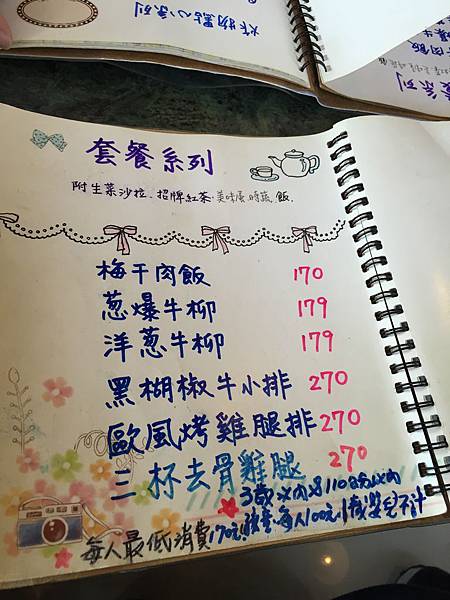 炸物點心系列
套餐系列
附生菜沙拉、招牌紅茶、美味蛋、時蔬、飯、
梅干肉飯 170
蔥爆牛柳 179
洋蔥牛柳 179
黑胡椒牛小排 270
歐風烤雞腿排 270
三杯去骨雞腿 270
3歲以內身110公分以內
每人最低消費170元 孩童每人100元 1歲嬰兒不計